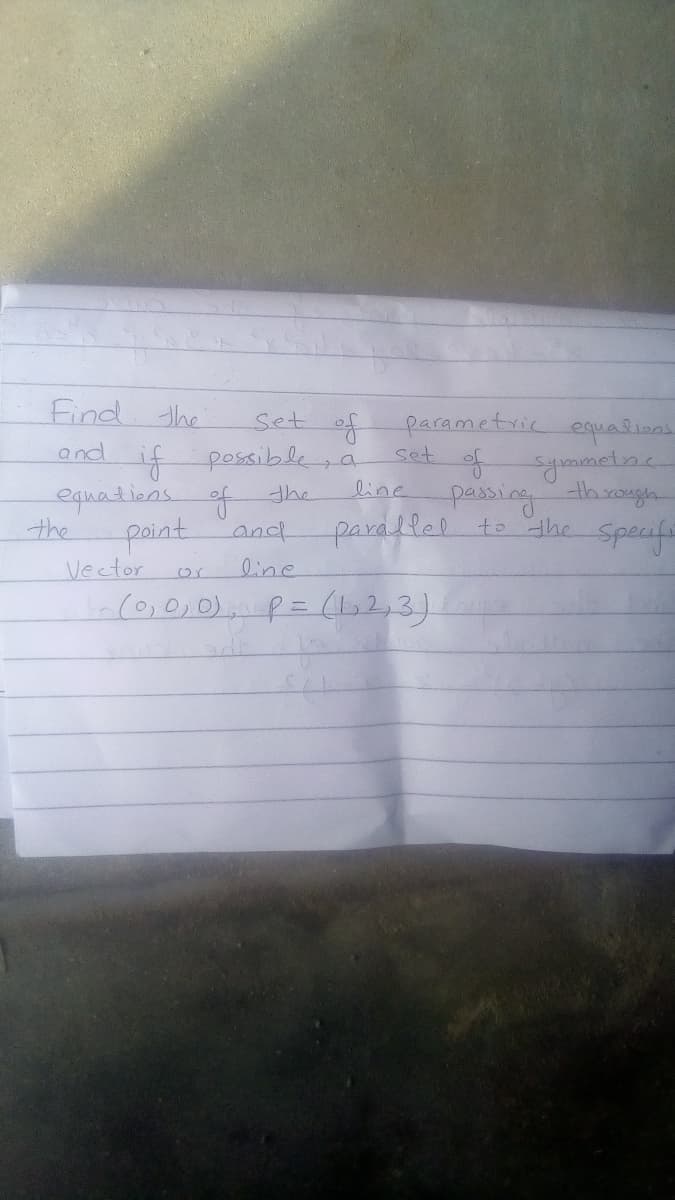 Find the set of parametric equations
and if possible, a set of symmetric
equations of the line passing through
the point and parallel to the specifi
Vector or line
(0,0,0), P = (1,2,3)